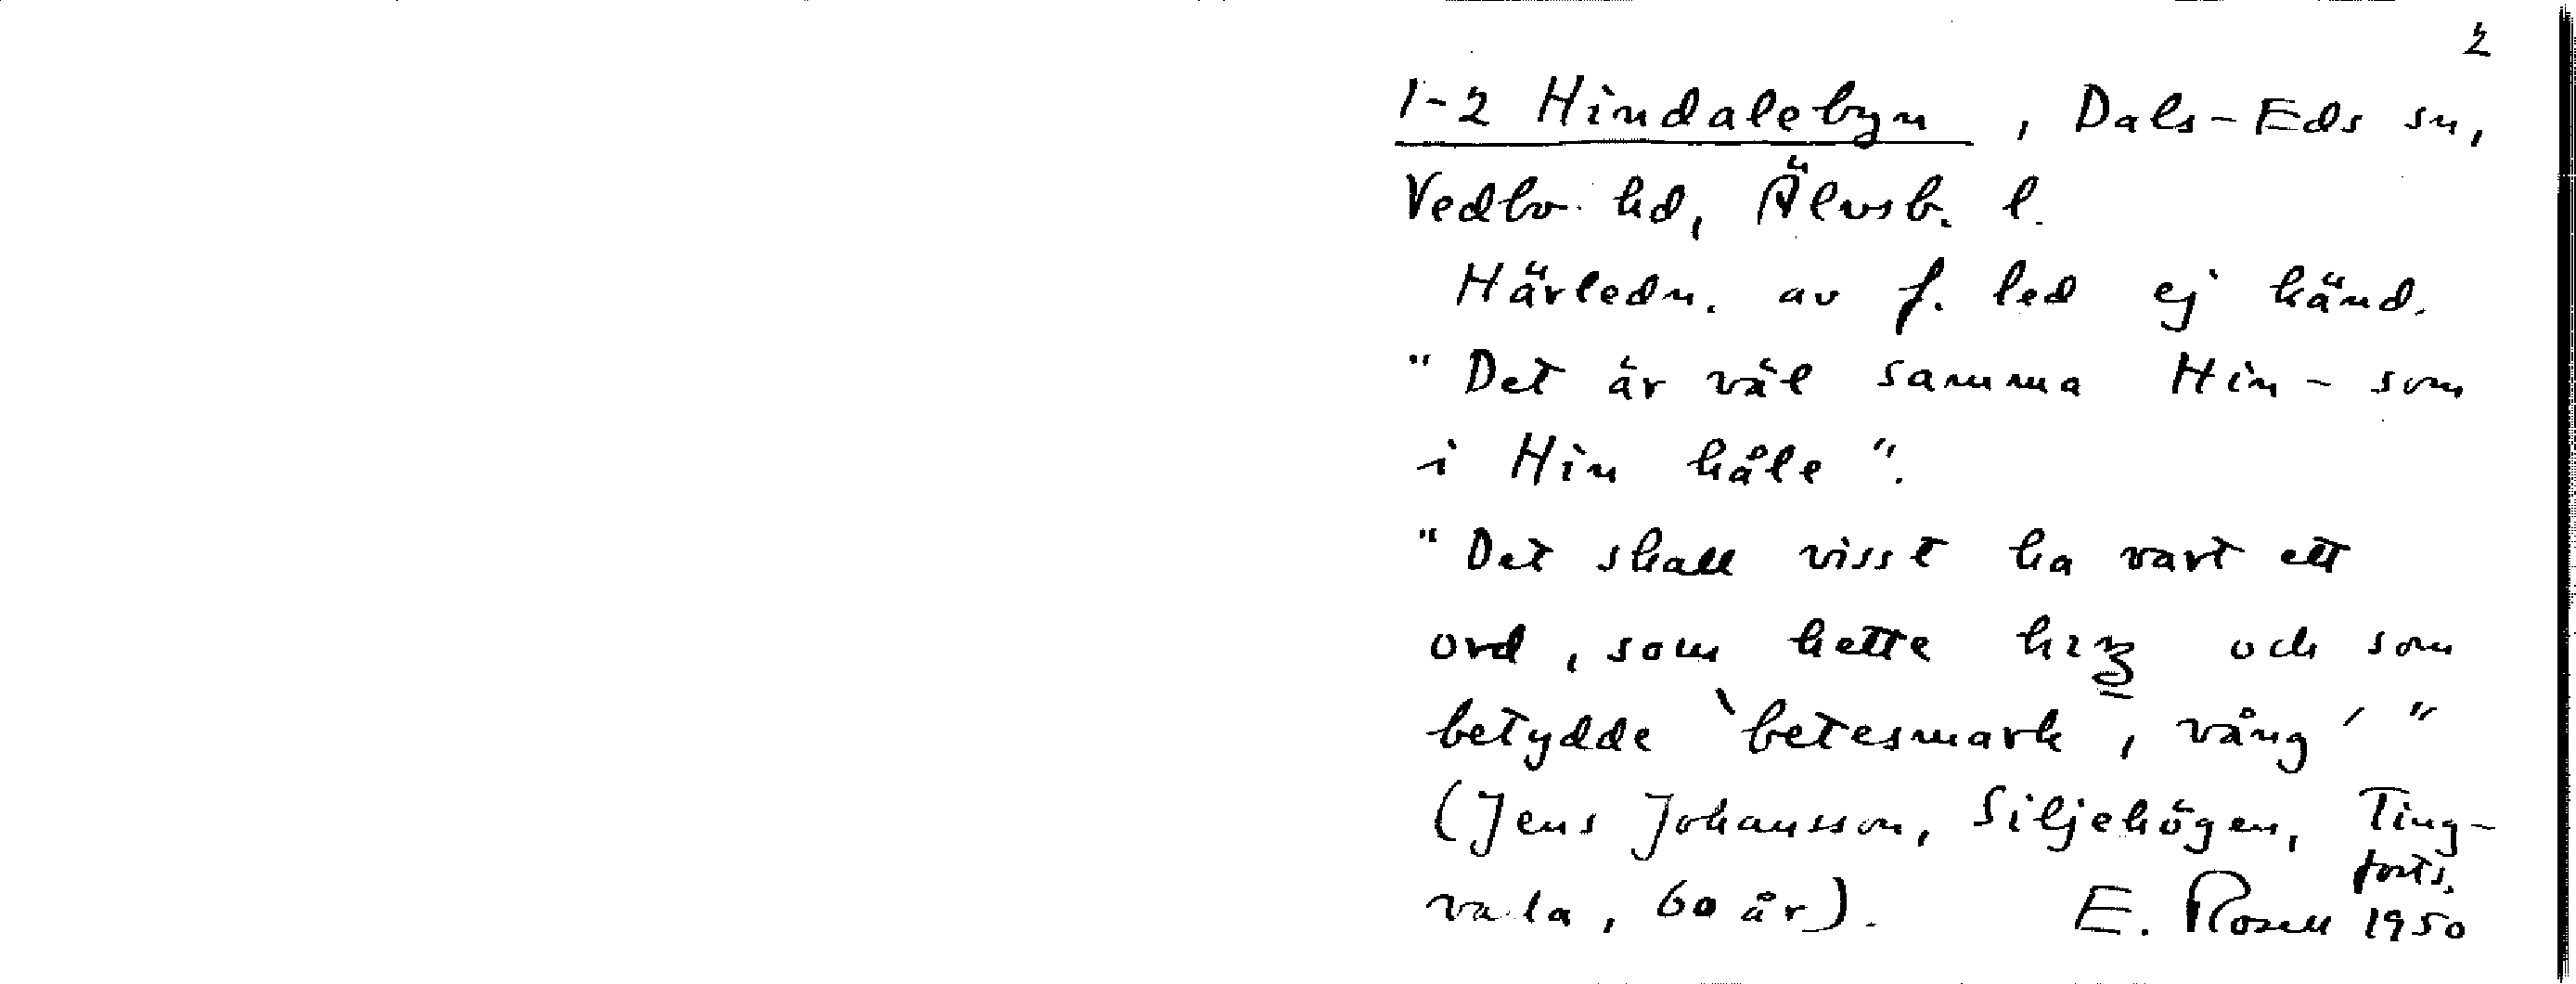 2
1-2 Hindalebyn, Dals-Eds sn,
Vedbo hd, Älvsb. l.
Härledn. av f. led ej känd.
"Det är väl samma Hin- som
i Hin håle".
"Det skall visst ha vart ett
ord, som hette och som
betydde 'betesmark, vång' "
(Jens Johansson, Siljehögen, Ting-
forts.
vala, 60 år). E. Rosell 1950